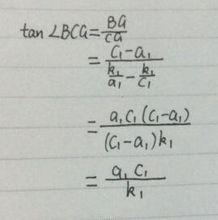 tan ∠BCG = BG/CG
= (c₁ - a₁)/(k₁/a₁ - k₁/c₁)
= a₁c₁(c₁ - a₁)/((c₁ - a₁)k₁)
= a₁c₁/k₁